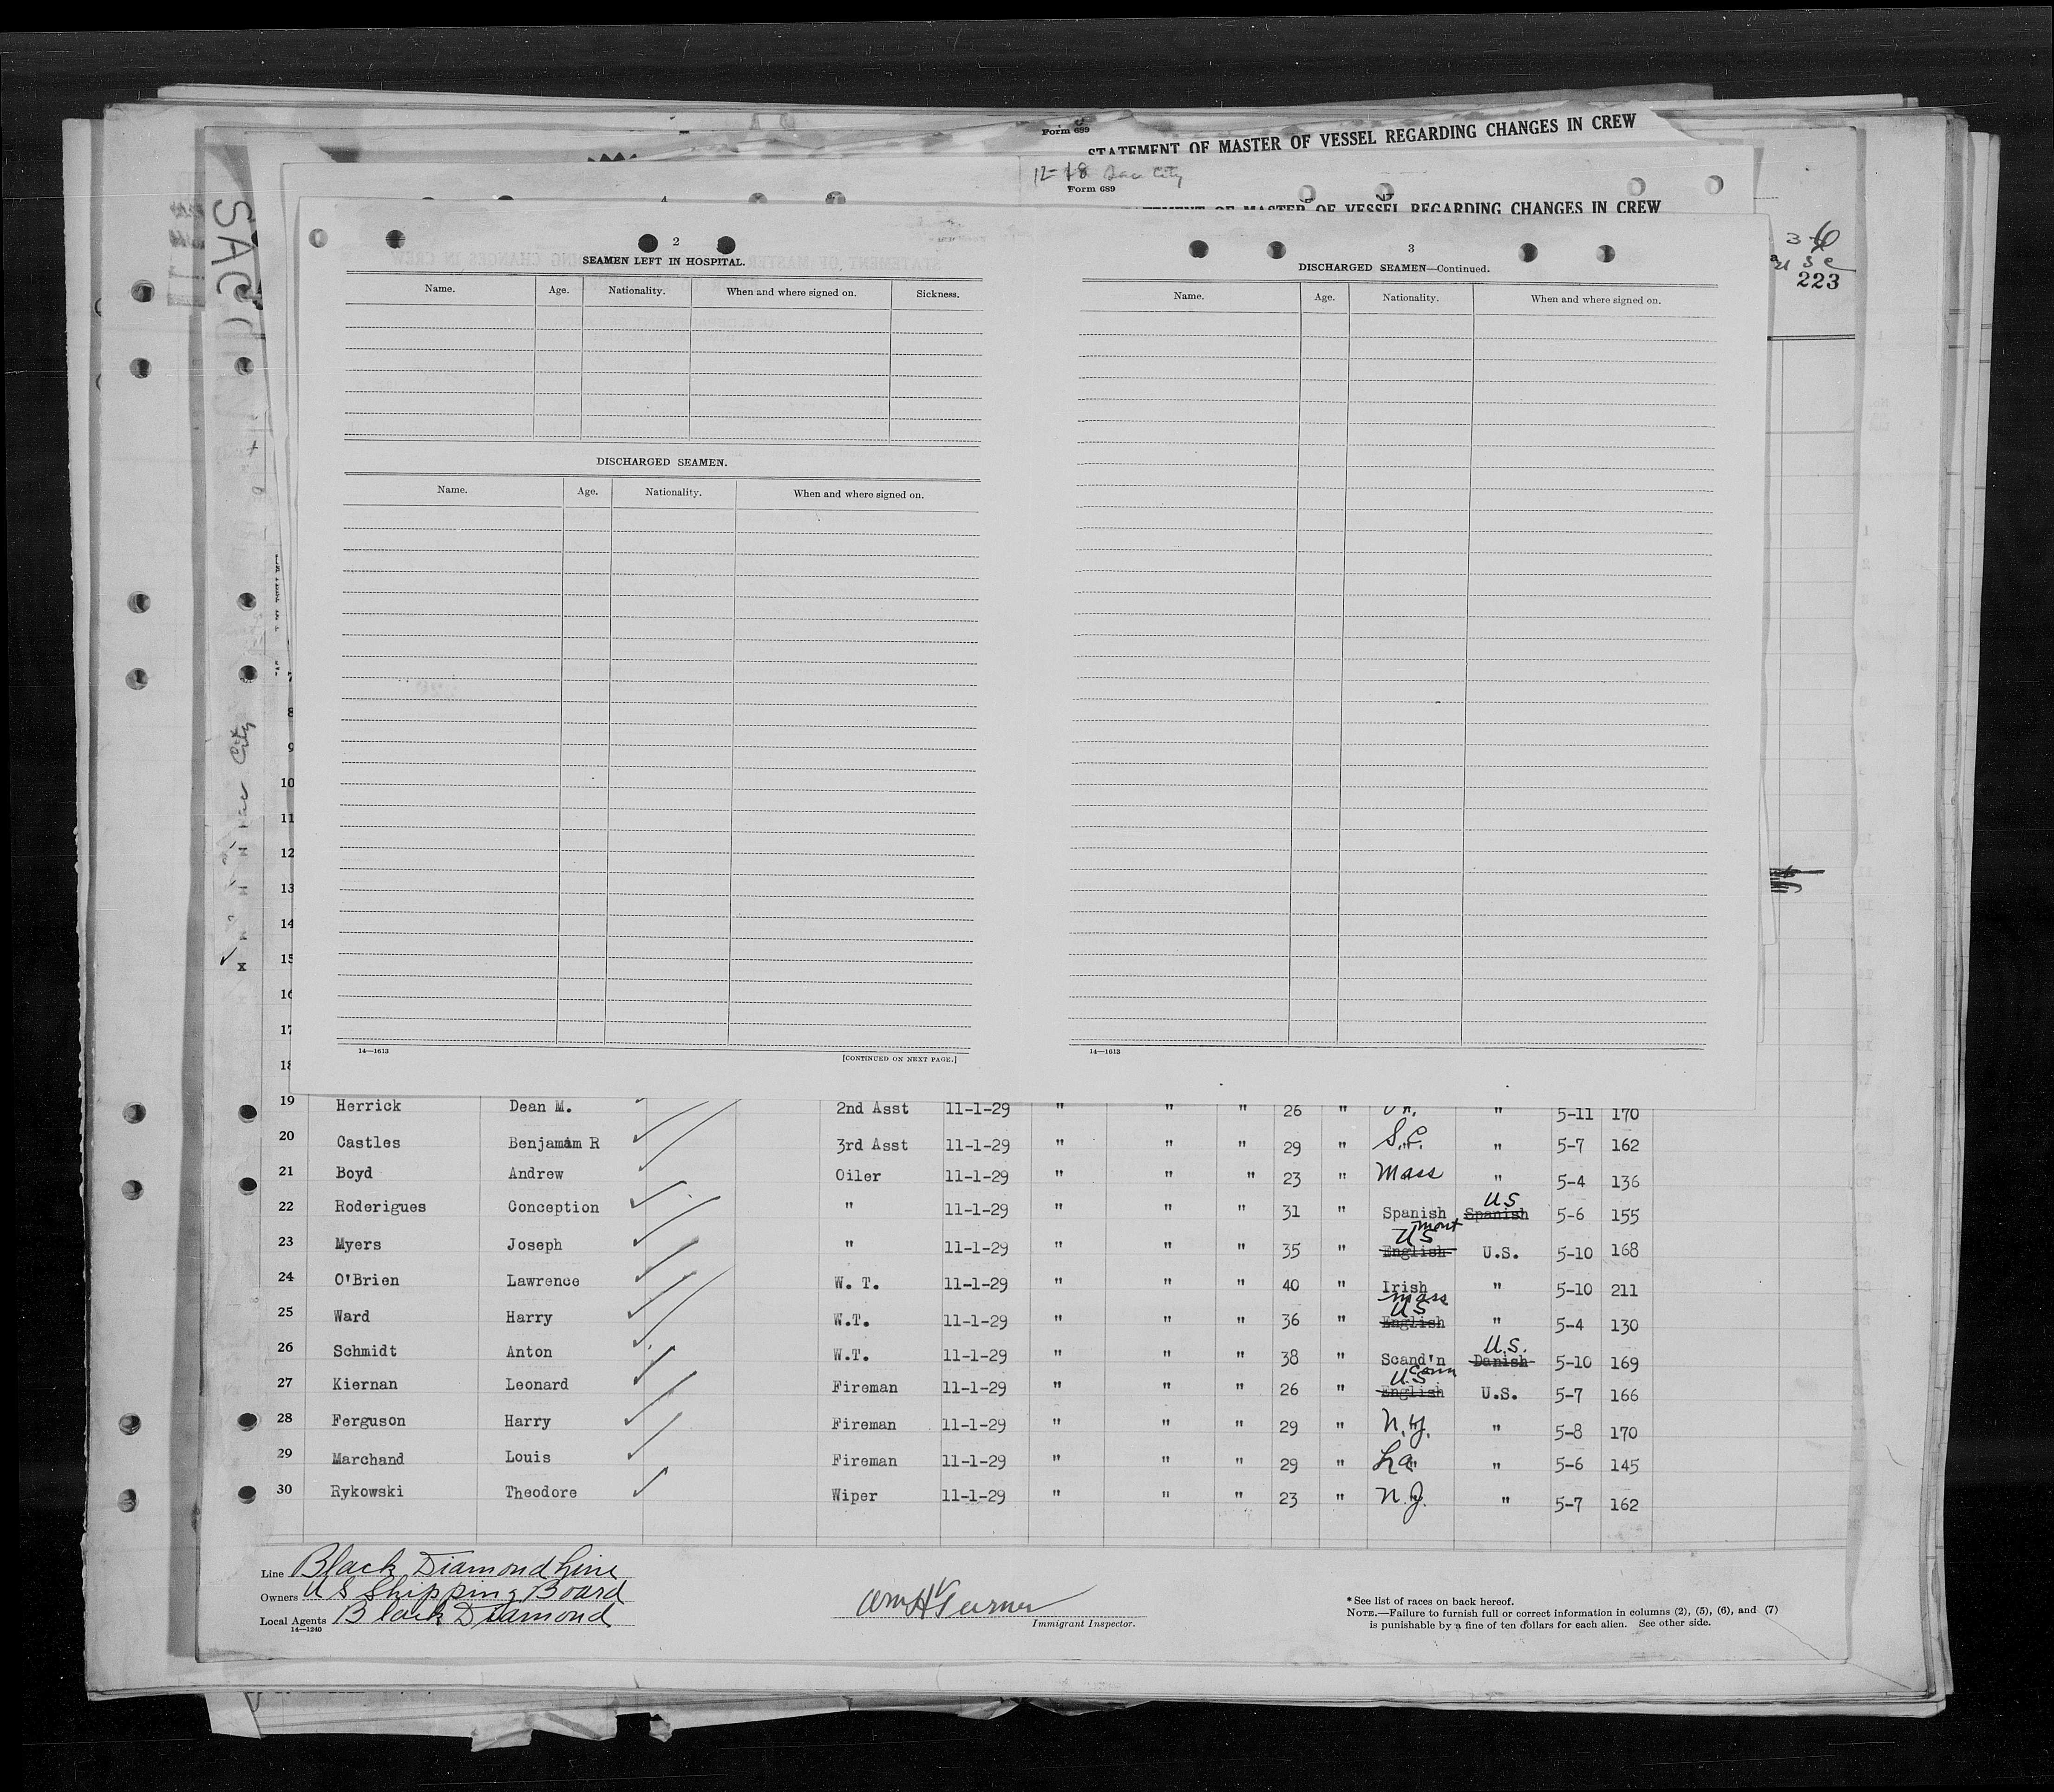 Form 689
STATEMENT OF MASTER OF VESSEL REGARDING CHANGES IN CREW
12-18 Sac City
Form 689
STATEMENT OF MASTER OF VESSEL REGARDING CHANGES IN CREW
SAC C
223
2
SEAMEN LEFT IN HOSPITAL.
Name. Age. Nationality. When and where signed on. Sickness.
DISCHARGED SEAMEN.
Name. Age. Nationality. When and where signed on.
14—1613 [CONTINUED ON NEXT PAGE.]
3
DISCHARGED SEAMEN—Continued.
Name. Age. Nationality. When and where signed on.
14—1613
City
8
9
10
11
12
13
14
15
16
17
18
19 Herrick Dean M. 2nd Asst 11-1-29 " " " 26 " " 5-11 170
20 Castles Benjamim R 3rd Asst 11-1-29 " " " 29 " S.C. " 5-7 162
21 Boyd Andrew Oiler 11-1-29 " " " 23 " Mass " 5-4 136
22 Roderigues Conception " 11-1-29 " " " 31 " Spanish Spanish US 5-6 155
23 Myers Joseph " 11-1-29 " " " 35 " English US Mont U.S. 5-10 168
24 O'Brien Lawrence W. T. 11-1-29 " " " 40 " Irish " 5-10 211
25 Ward Harry W.T. 11-1-29 " " " 36 " English US Mass " 5-4 130
26 Schmidt Anton W.T. 11-1-29 " " " 38 " Scand'n Danish U.S. 5-10 169
27 Kiernan Leonard Fireman 11-1-29 " " " 26 " English U.S Conn U.S. 5-7 166
28 Ferguson Harry Fireman 11-1-29 " " " 29 " N.Y. " 5-8 170
29 Marchand Louis Fireman 11-1-29 " " " 29 " La " 5-6 145
30 Rykowski Theodore Wiper 11-1-29 " " " 23 " N.J. " 5-7 162
Line Black Diamond Line
Owners U S Shipping Board
Local Agents Black Diamond
14—1240
Wm H Turner
Immigrant Inspector.
* See list of races on back hereof.
NOTE.—Failure to furnish full or correct information in columns (2), (5), (6), and (7)
is punishable by a fine of ten dollars for each alien. See other side.